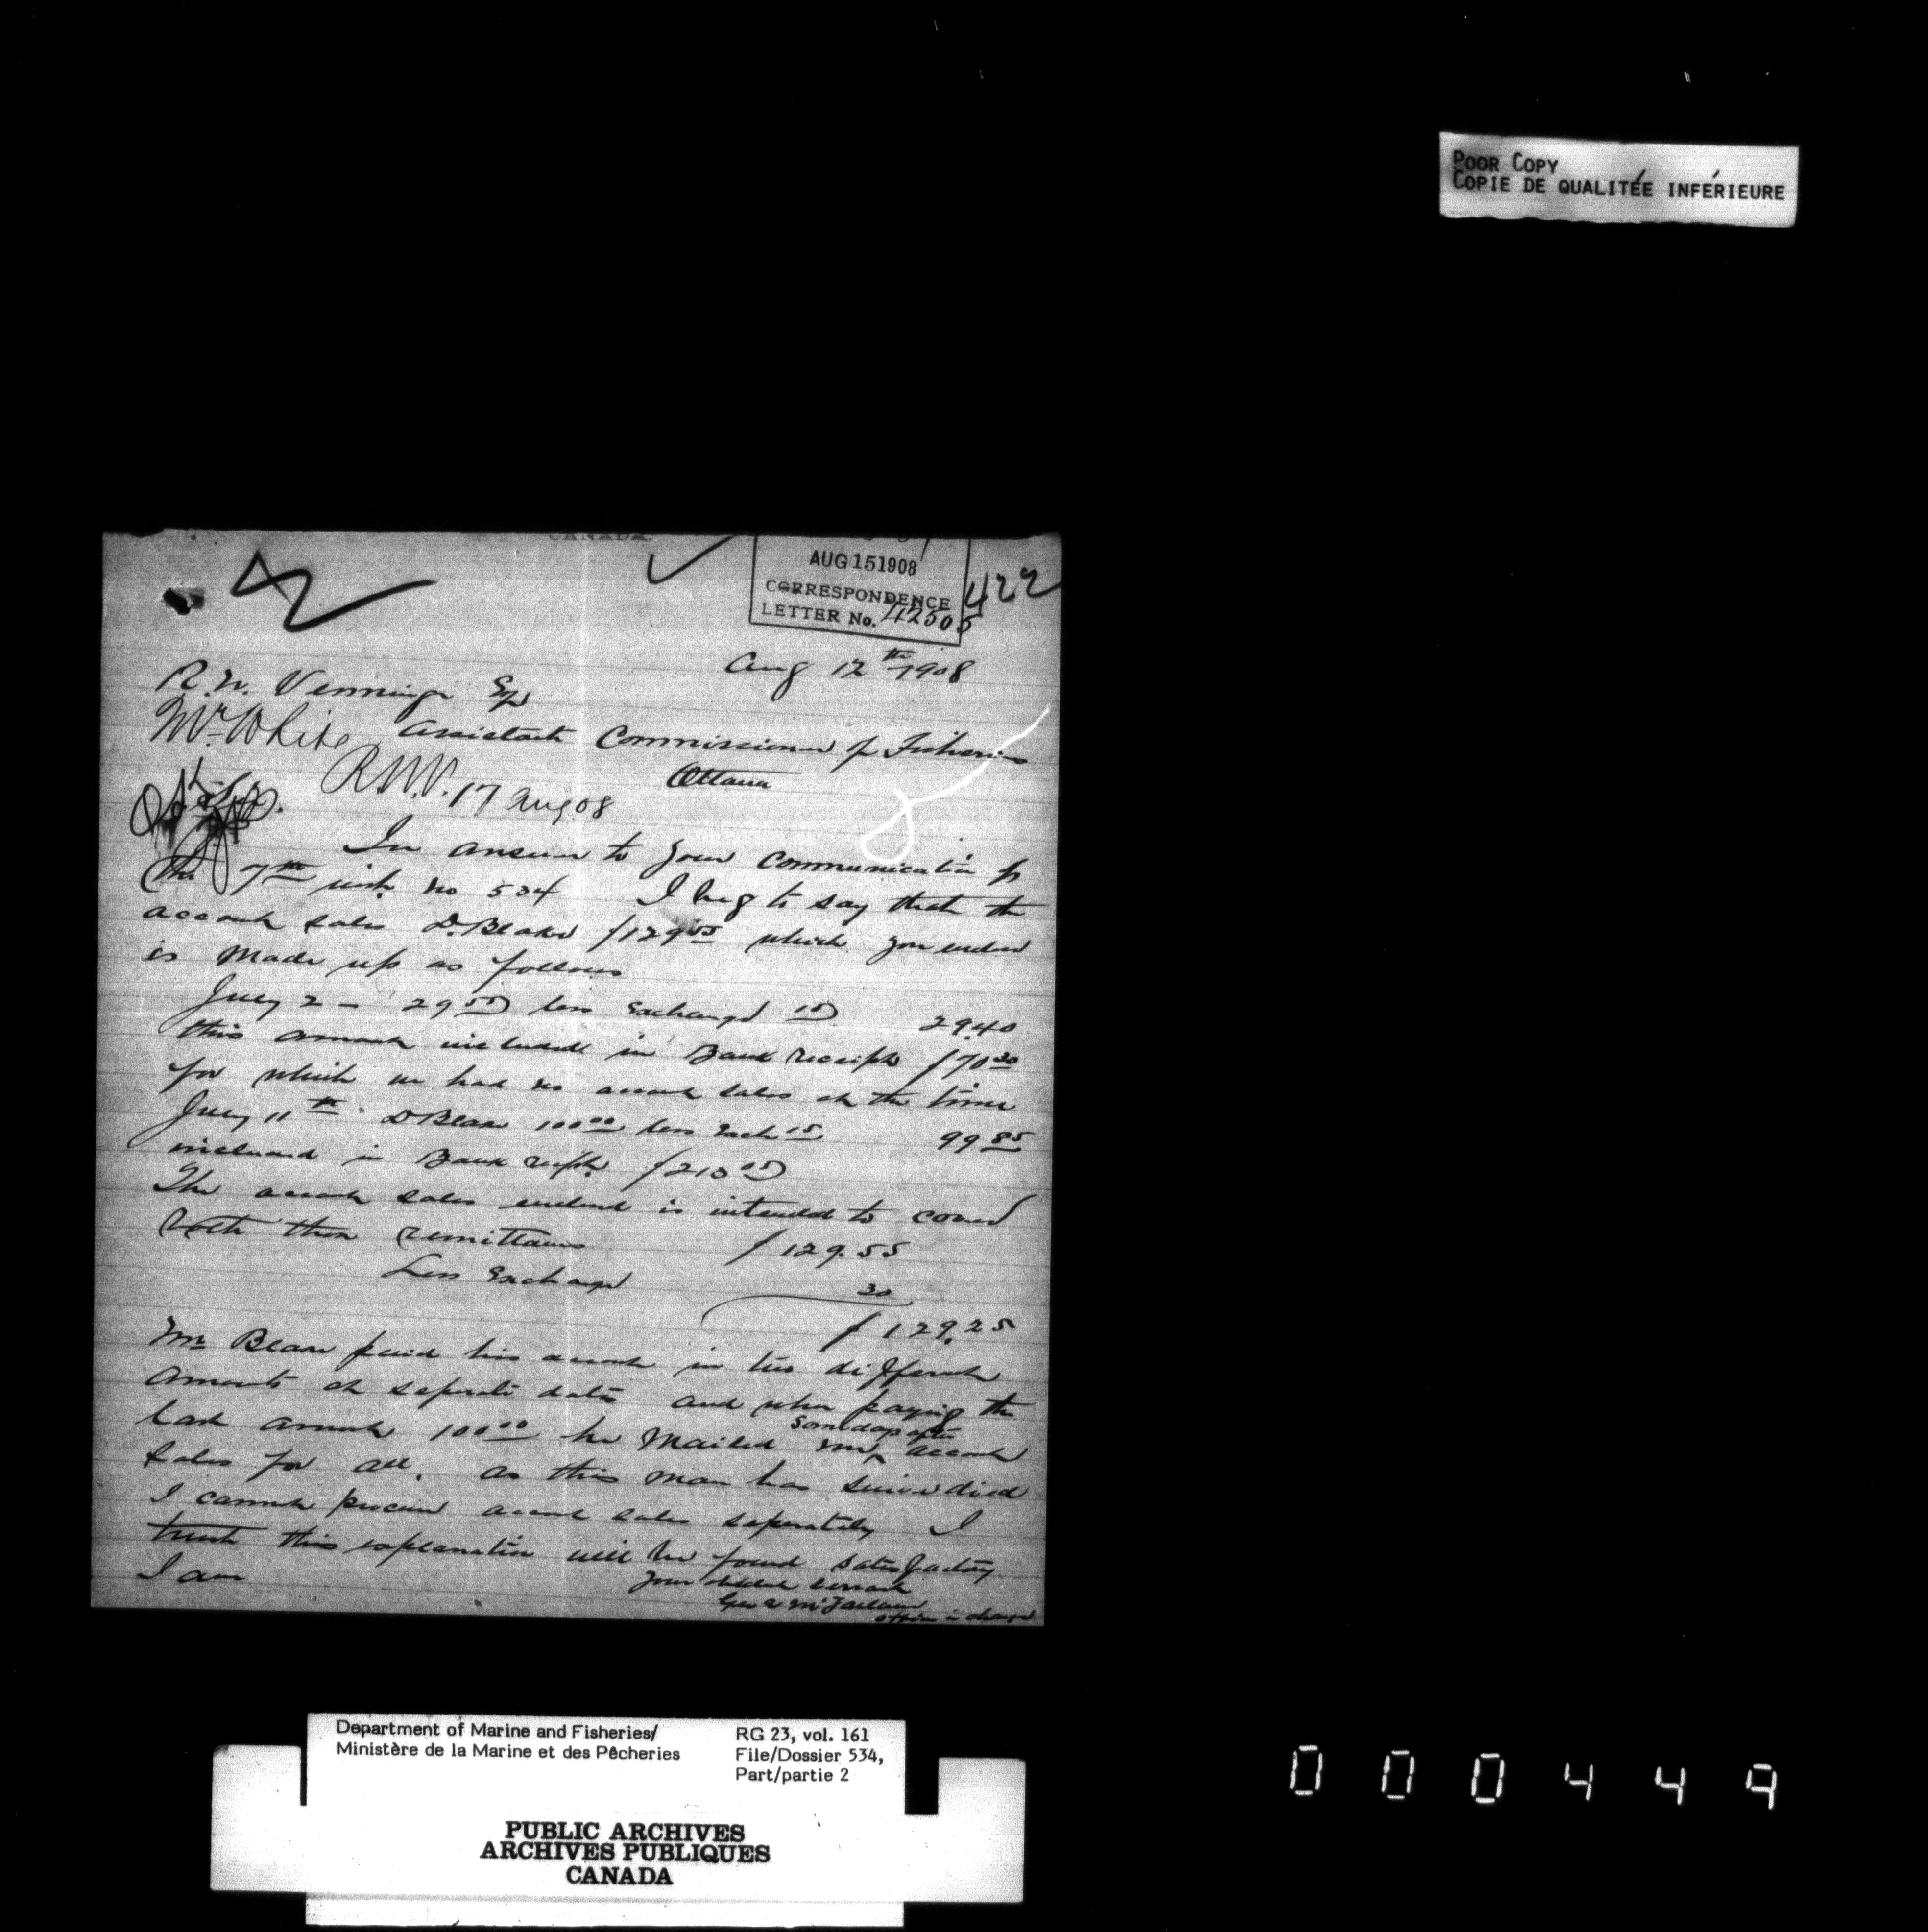 POOR COPY
COPIE DE QUALITÉE INFÉRIEURE
CANADA.
AUG 15 1908
CORRESPONDENCE
LETTER No. 42505
422
Aug 12th 1908
R.N. Venning Esq
Mr White
Assistant Commissioner of Fisheries
Ottawa
R.N.V. 17 Aug 08
In answer to your communication of
the 7th inst. no 534 I beg to say that the
account sales D. Blake $129.55 which you enclose
is made up as follows
July 2 - 29.55 less Exchange 15 29.40
this amount included in Bank receipt $70.30
for which we had no account sales at the time
July 11th D Blake 100.00 less Exch 15 99.85
included in Bank recpt.
The account sales enclosed is intended to cover
both these remittances $129.55
Less Exchange 30
$129.25
Mr Blake paid his account in two different
amounts at seperate dates and when paying the
last amount 100.00 he mailed me some days after account
sales for all. as this man has since died
I cannot procure account sales seperately I
trust this explanation will be found satisfactory
I am
Your obedient servant
Geo McFarlane
officer in charge
Department of Marine and Fisheries/
Ministère de la Marine et des Pêcheries
RG 23, vol. 161
File/Dossier 534,
Part/partie 2
PUBLIC ARCHIVES
ARCHIVES PUBLIQUES
CANADA
000449